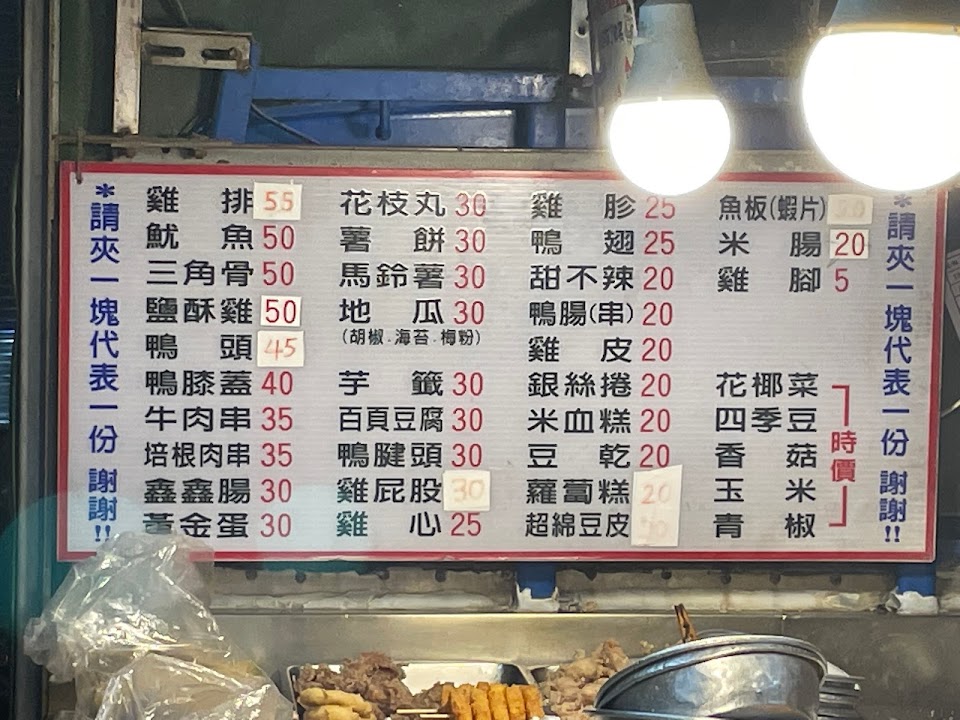 *請夾一塊代表一份 謝謝!!
雞排 55
魷魚 50
三角骨 50
鹽酥雞 50
鴨頭 45
鴨膝蓋 40
牛肉串 35
培根肉串 35
鑫鑫腸 30
黃金蛋 30
花枝丸 30
薯餅 30
馬鈴薯 30
地瓜 30
(胡椒.海苔.梅粉)
芋籤 30
百頁豆腐 30
鴨腱頭 30
雞屁股 30
雞心 25
雞胗 25
鴨翅 25
甜不辣 20
鴨腸(串) 20
雞皮 20
銀絲捲 20
米血糕 20
豆乾 20
蘿蔔糕 20
超綿豆皮
魚板(蝦片)
米腸 20
雞腳 5
花椰菜
四季豆
香菇
玉米
青椒
時價
*請夾一塊代表一份 謝謝!!